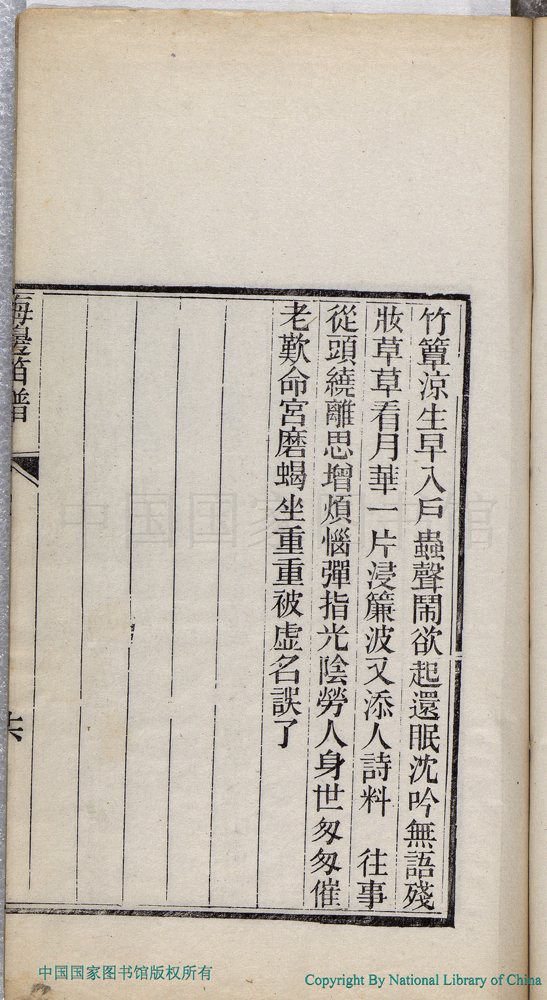 竹簟涼生早入戶蟲聲鬧欲起還眠沈吟無語殘
妝草草看月華一片浸簾波又添人詩料　往事
從頭繞離思增煩惱彈指光陰勞人身世匆匆催
老歎命宮磨蝎坐重重被虛名誤了
海邊笛譜
六
中国国家图书馆
中国国家图书馆版权所有
Copyright By National Library of China